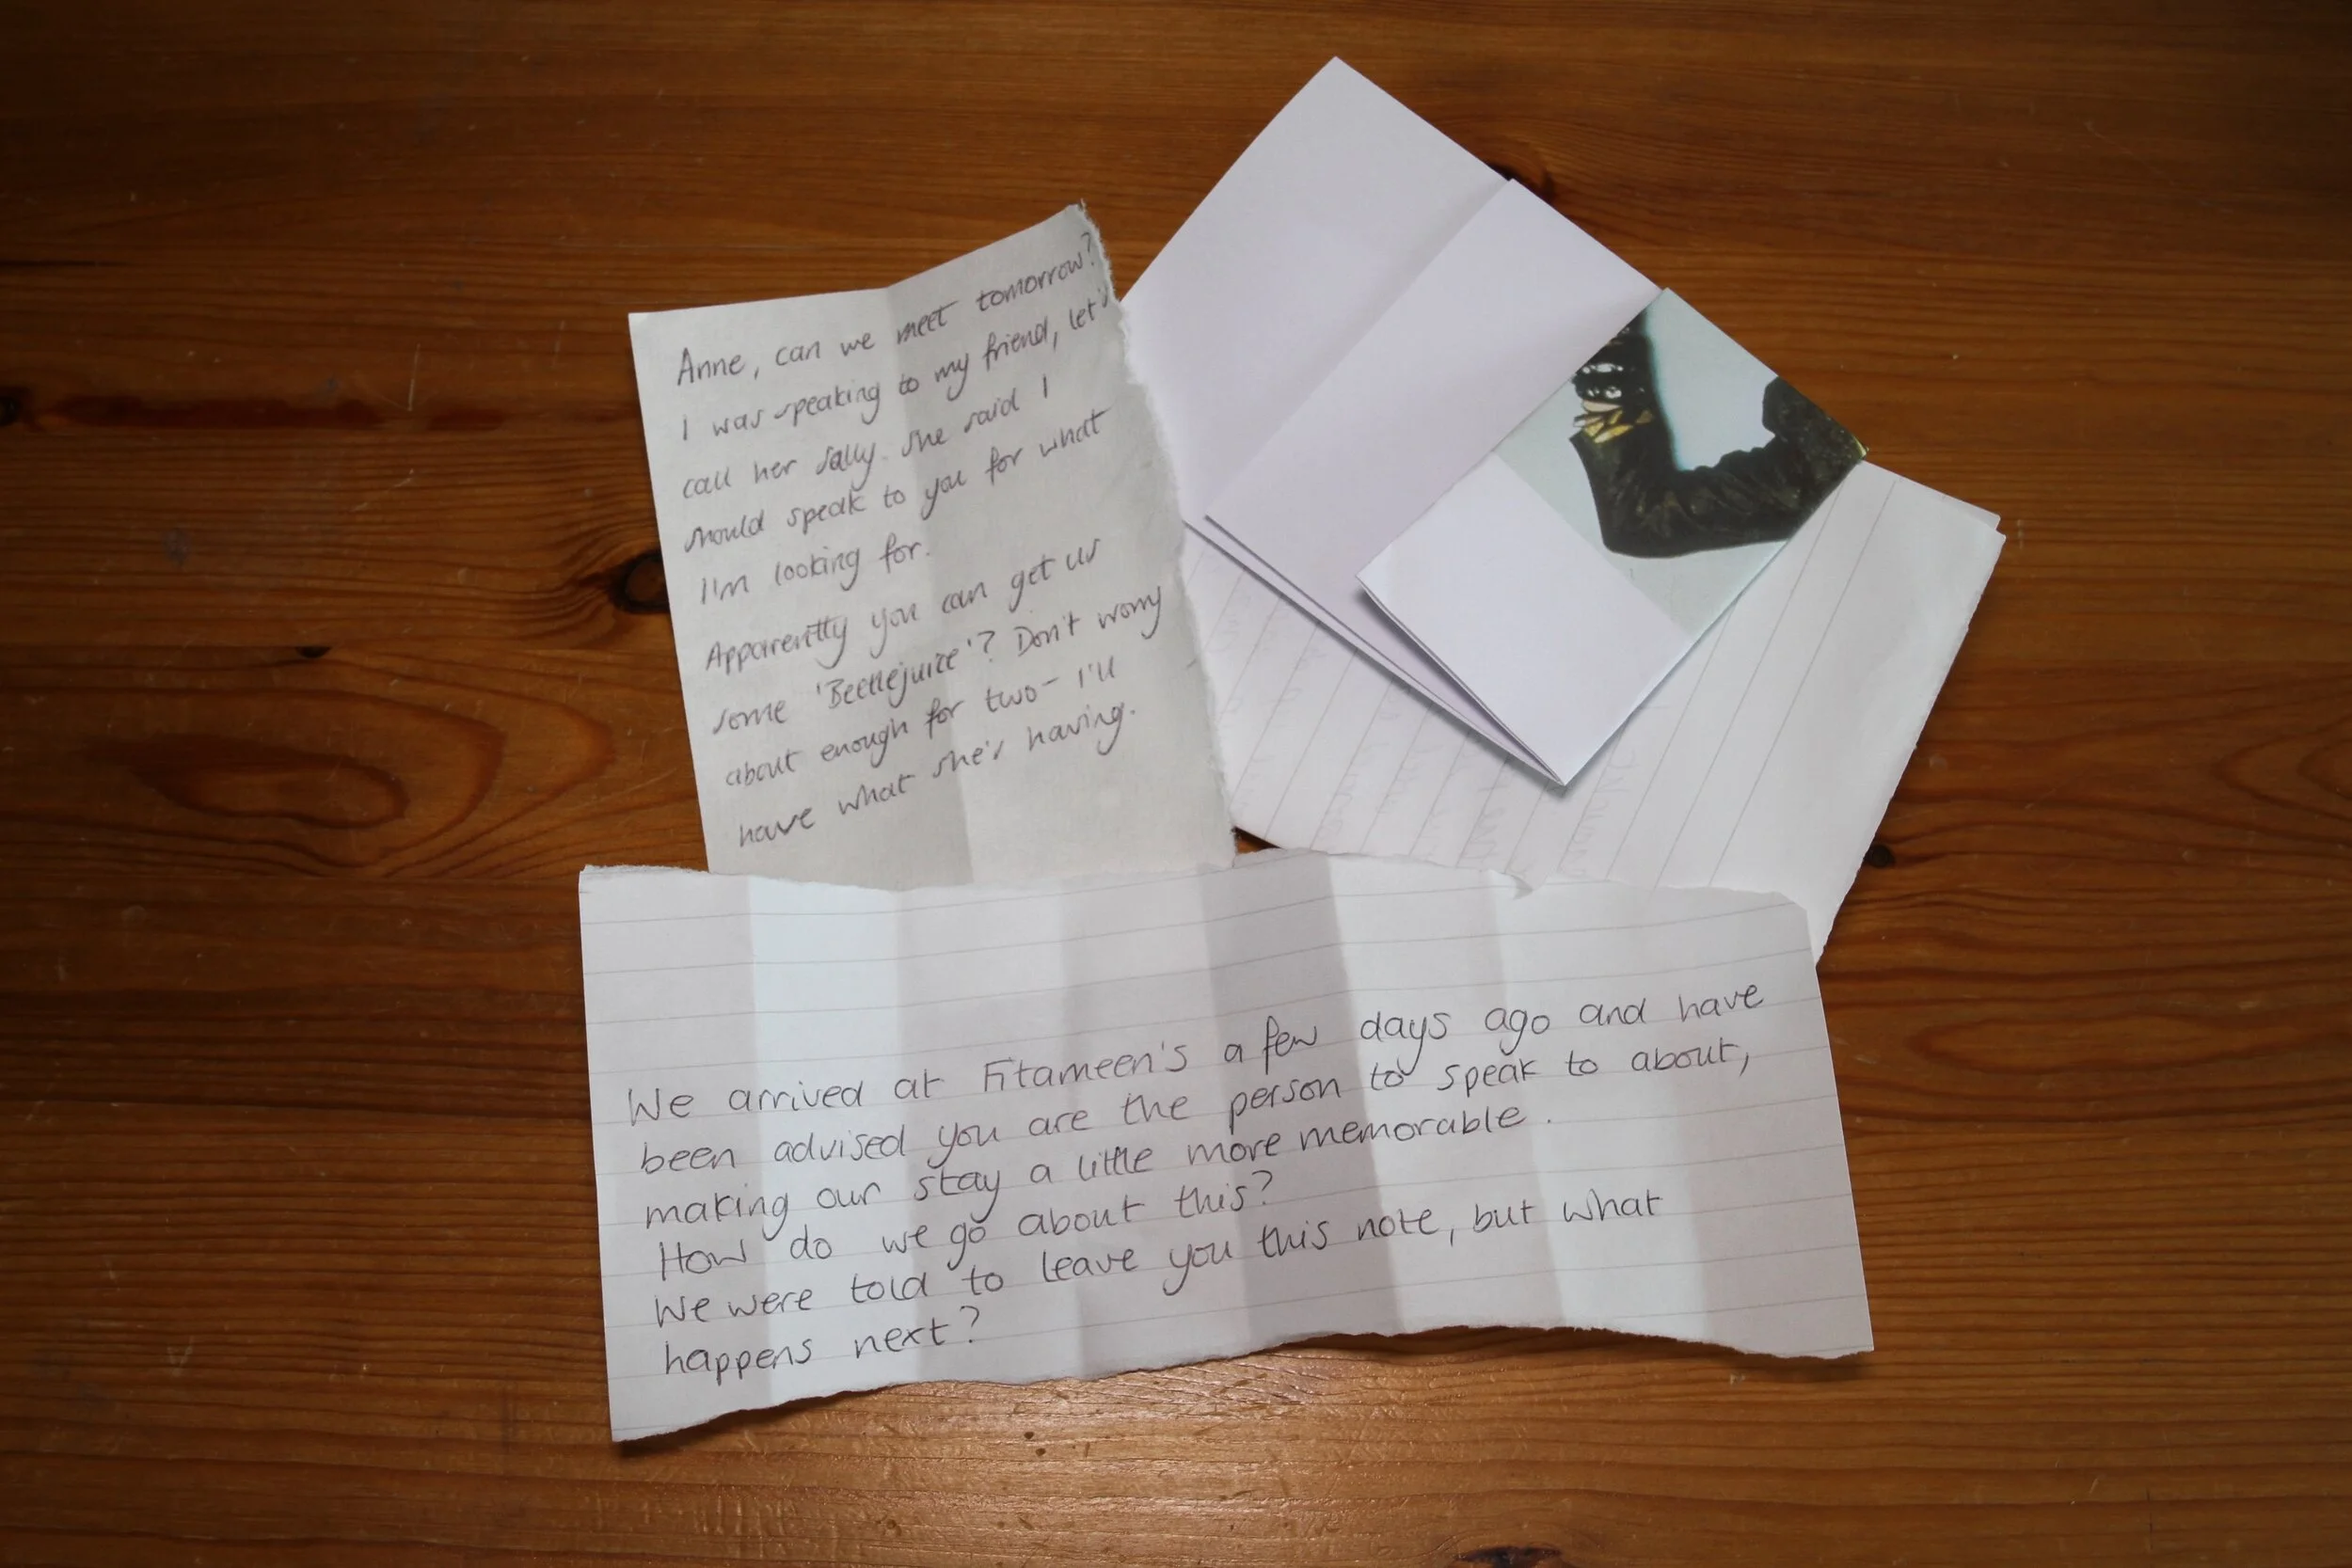 Anne, can we meet tomorrow?
I was speaking to my friend, let's
call her Sally. She said I
should speak to you for what
I'm looking for.
Apparently you can get us
some 'Beetlejuice'? Don't worry
about enough for two - I'll
have what she's having.
We arrived at Fitameen's a few days ago and have
been advised you are the person to speak to about,
making our stay a little more memorable.
How do we go about this?
We were told to leave you this note, but what
happens next?